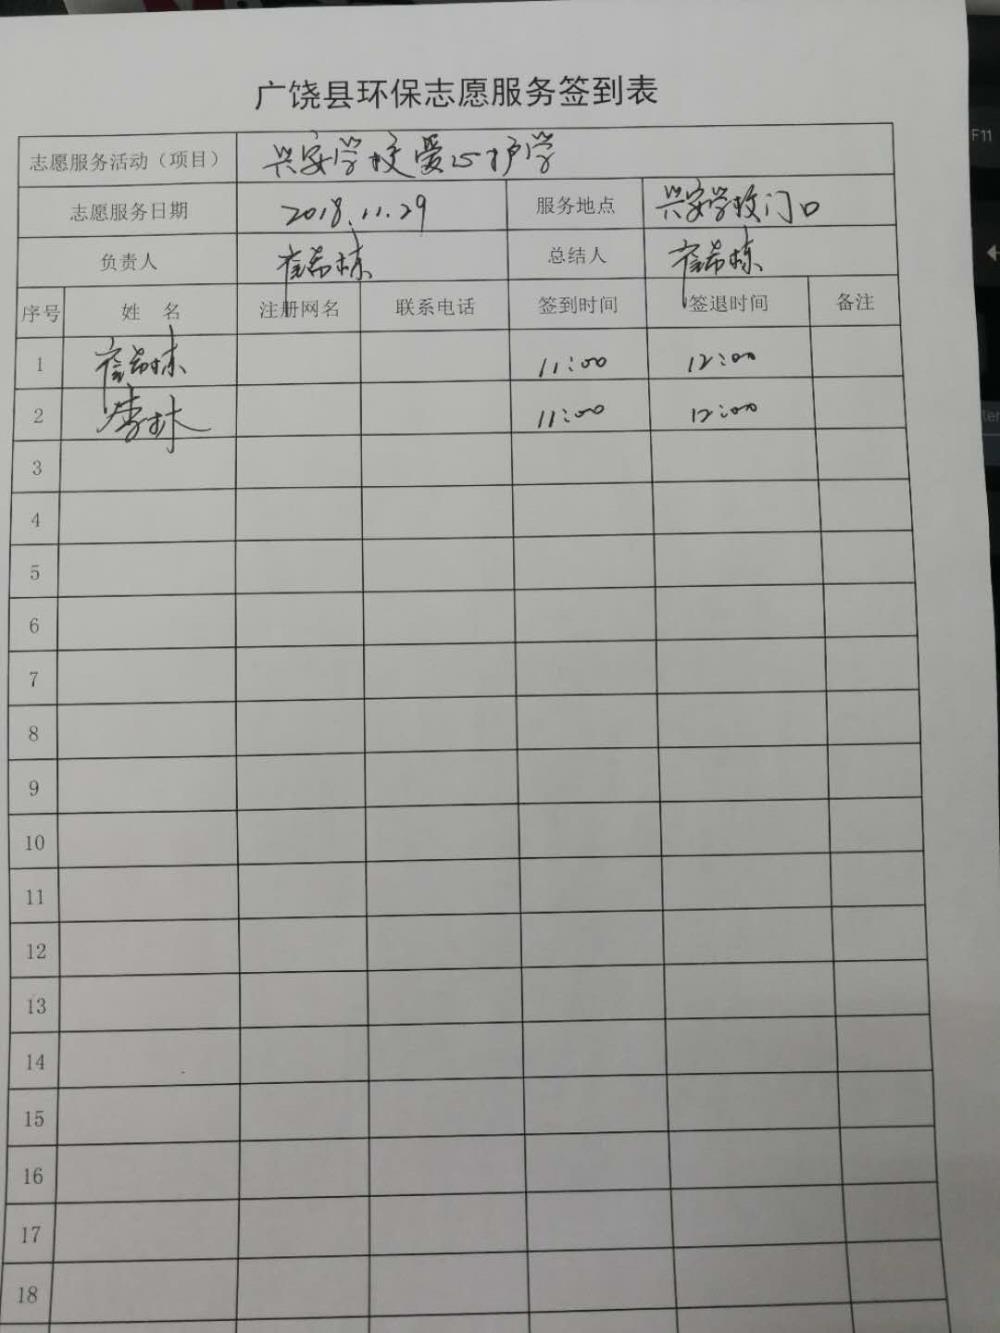 广饶县环保志愿服务签到表
志愿服务活动（项目） 兴安学校爱心护学
志愿服务日期 2018.11.29 服务地点 兴安学校门口
负责人 总结人
序号 姓 名 注册网名 联系电话 签到时间 签退时间 备注
1 11:00 12:00
2 李林 11:00 12:00
3
4
5
6
7
8
9
10
11
12
13
14
15
16
17
18
F11